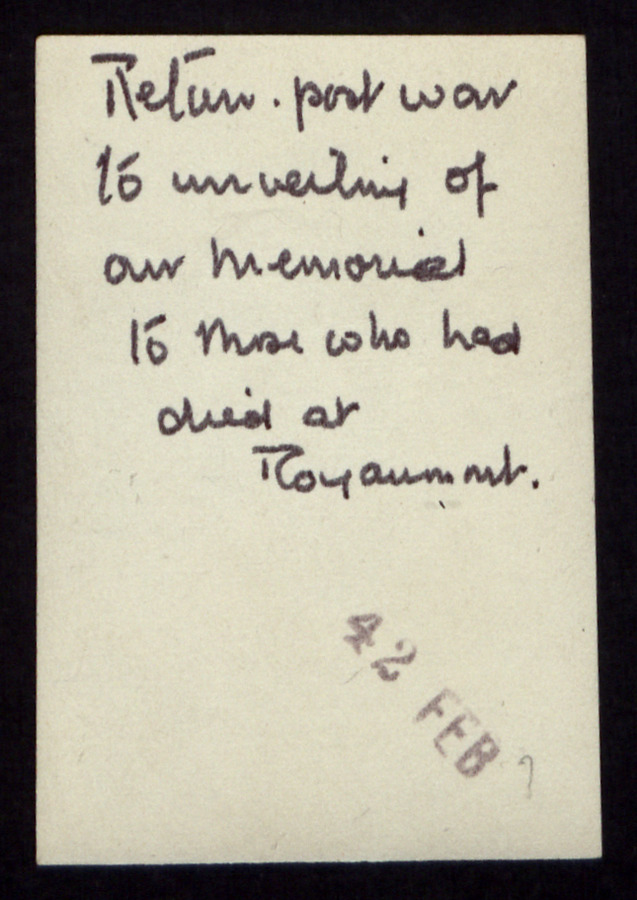 Return. post war
to unveiling of
our memorial
to those who had
died at
Royaumont.
42 FEB